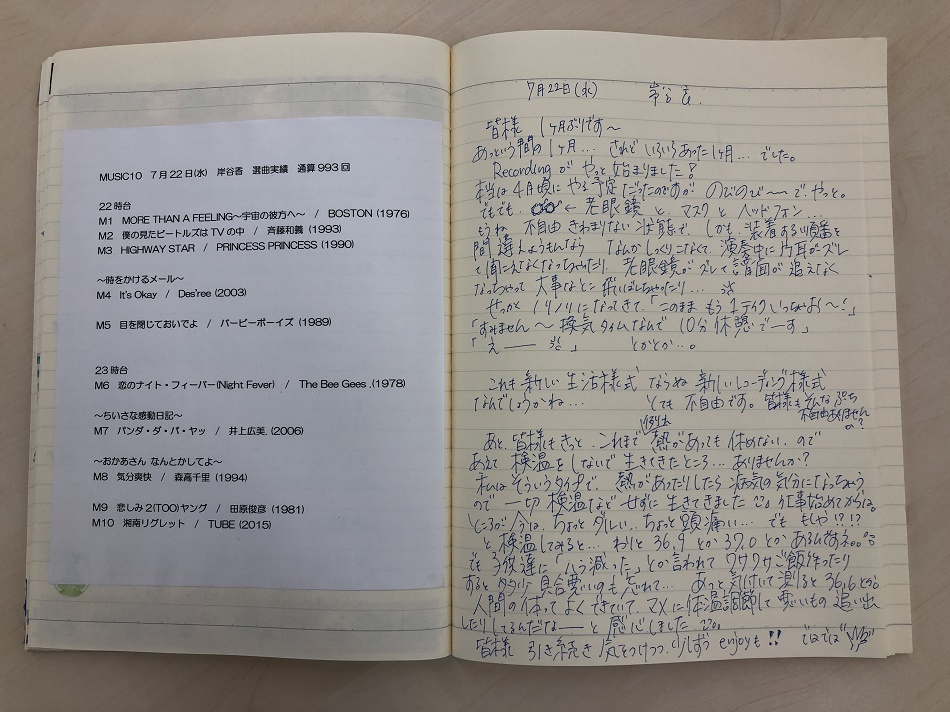 MUSIC10 7月22日(水) 岸谷香 選曲実績 通算993回
22時台
M1 MORE THAN A FEELING～宇宙の彼方へ～ / BOSTON (1976)
M2 僕の見たビートルズはTVの中 / 斉藤和義 (1993)
M3 HIGHWAY STAR / PRINCESS PRINCESS (1990)
～時をかけるメール～
M4 It's Okay / Des'ree (2003)
M5 目を閉じておいでよ / バービーボーイズ (1989)
23時台
M6 恋のナイト・フィーバー(Night Fever) / The Bee Gees .(1978)
～ちいさな感動日記～
M7 パンダ・ダ・パ・ヤッ / 井上広美. (2006)
～おかあさん なんとかしてよ～
M8 気分爽快 / 森高千里 (1994)
M9 悲しみ2(TOO)ヤング / 田原俊彦 (1981)
M10 湘南リグレット / TUBE (2015)
7月22日(水) 岸谷香.
皆様 1ヶ月ぶりです～
あっという間の1ヶ月… されど いろいろあった1ヶ月… でした。
Recordingが やっと始まりました!
本当は4月頃に やる予定だったのですが のびのび～で、やっと。
でもでも、←老眼鏡と、マスクと ヘッドフォン…
もうね 不自由 きわまりない状態で、しかも、装着する順番を
間違えようもんなら なんかしっくりこなくて、演奏中に片耳がズレ
て聞こえなくなっちゃったり、老眼鏡がズレて譜面が追えなく
なっちゃって 大事なとこ 飛ばしちゃったり…
せっかく ノリノリになってきて、「このまま もう1テイク いっちゃお～!」
「すみません～ 換気タイムなんで 10分休憩でーす」
「え―― 」 とかとか…。
これも 新しい生活様式 ならぬ 新しいレコーディング様式
なんでしょうかね… とても 不自由です。皆様も そんな ぷち
不自由ありません
か?
あと、皆様もきっと、これまで 例え 熱があっても 休めない、ので
あえて 検温をしないで 生きてきたところ… ありませんか?
私は そういうタイプで、熱があったりしたら 病気の気分になっちゃう
ので 一切 検温など せずに 生きてきました 仕事始めてからは。
ところが 今は、ちょっと ダルい、ちょっと 頭痛い… でも もしや!?!?
と 検温してみると… わりと 36.9 とか 37.0 とか あるんですよね。
でも 子供達に「ハラ減った」とか言われて ワサワサ ご飯作ったり
すると 多少 具合悪いのも 忘れて… あっと 気付いて 測ると 36.6 とか。
人間の体って よくできていて、マメに 体温調節して 悪いもの 追い出
したりしてるんだな―― と 感心しました
皆様 引き続き 気をつけつつ、少しずつ enjoyも!! ではでは